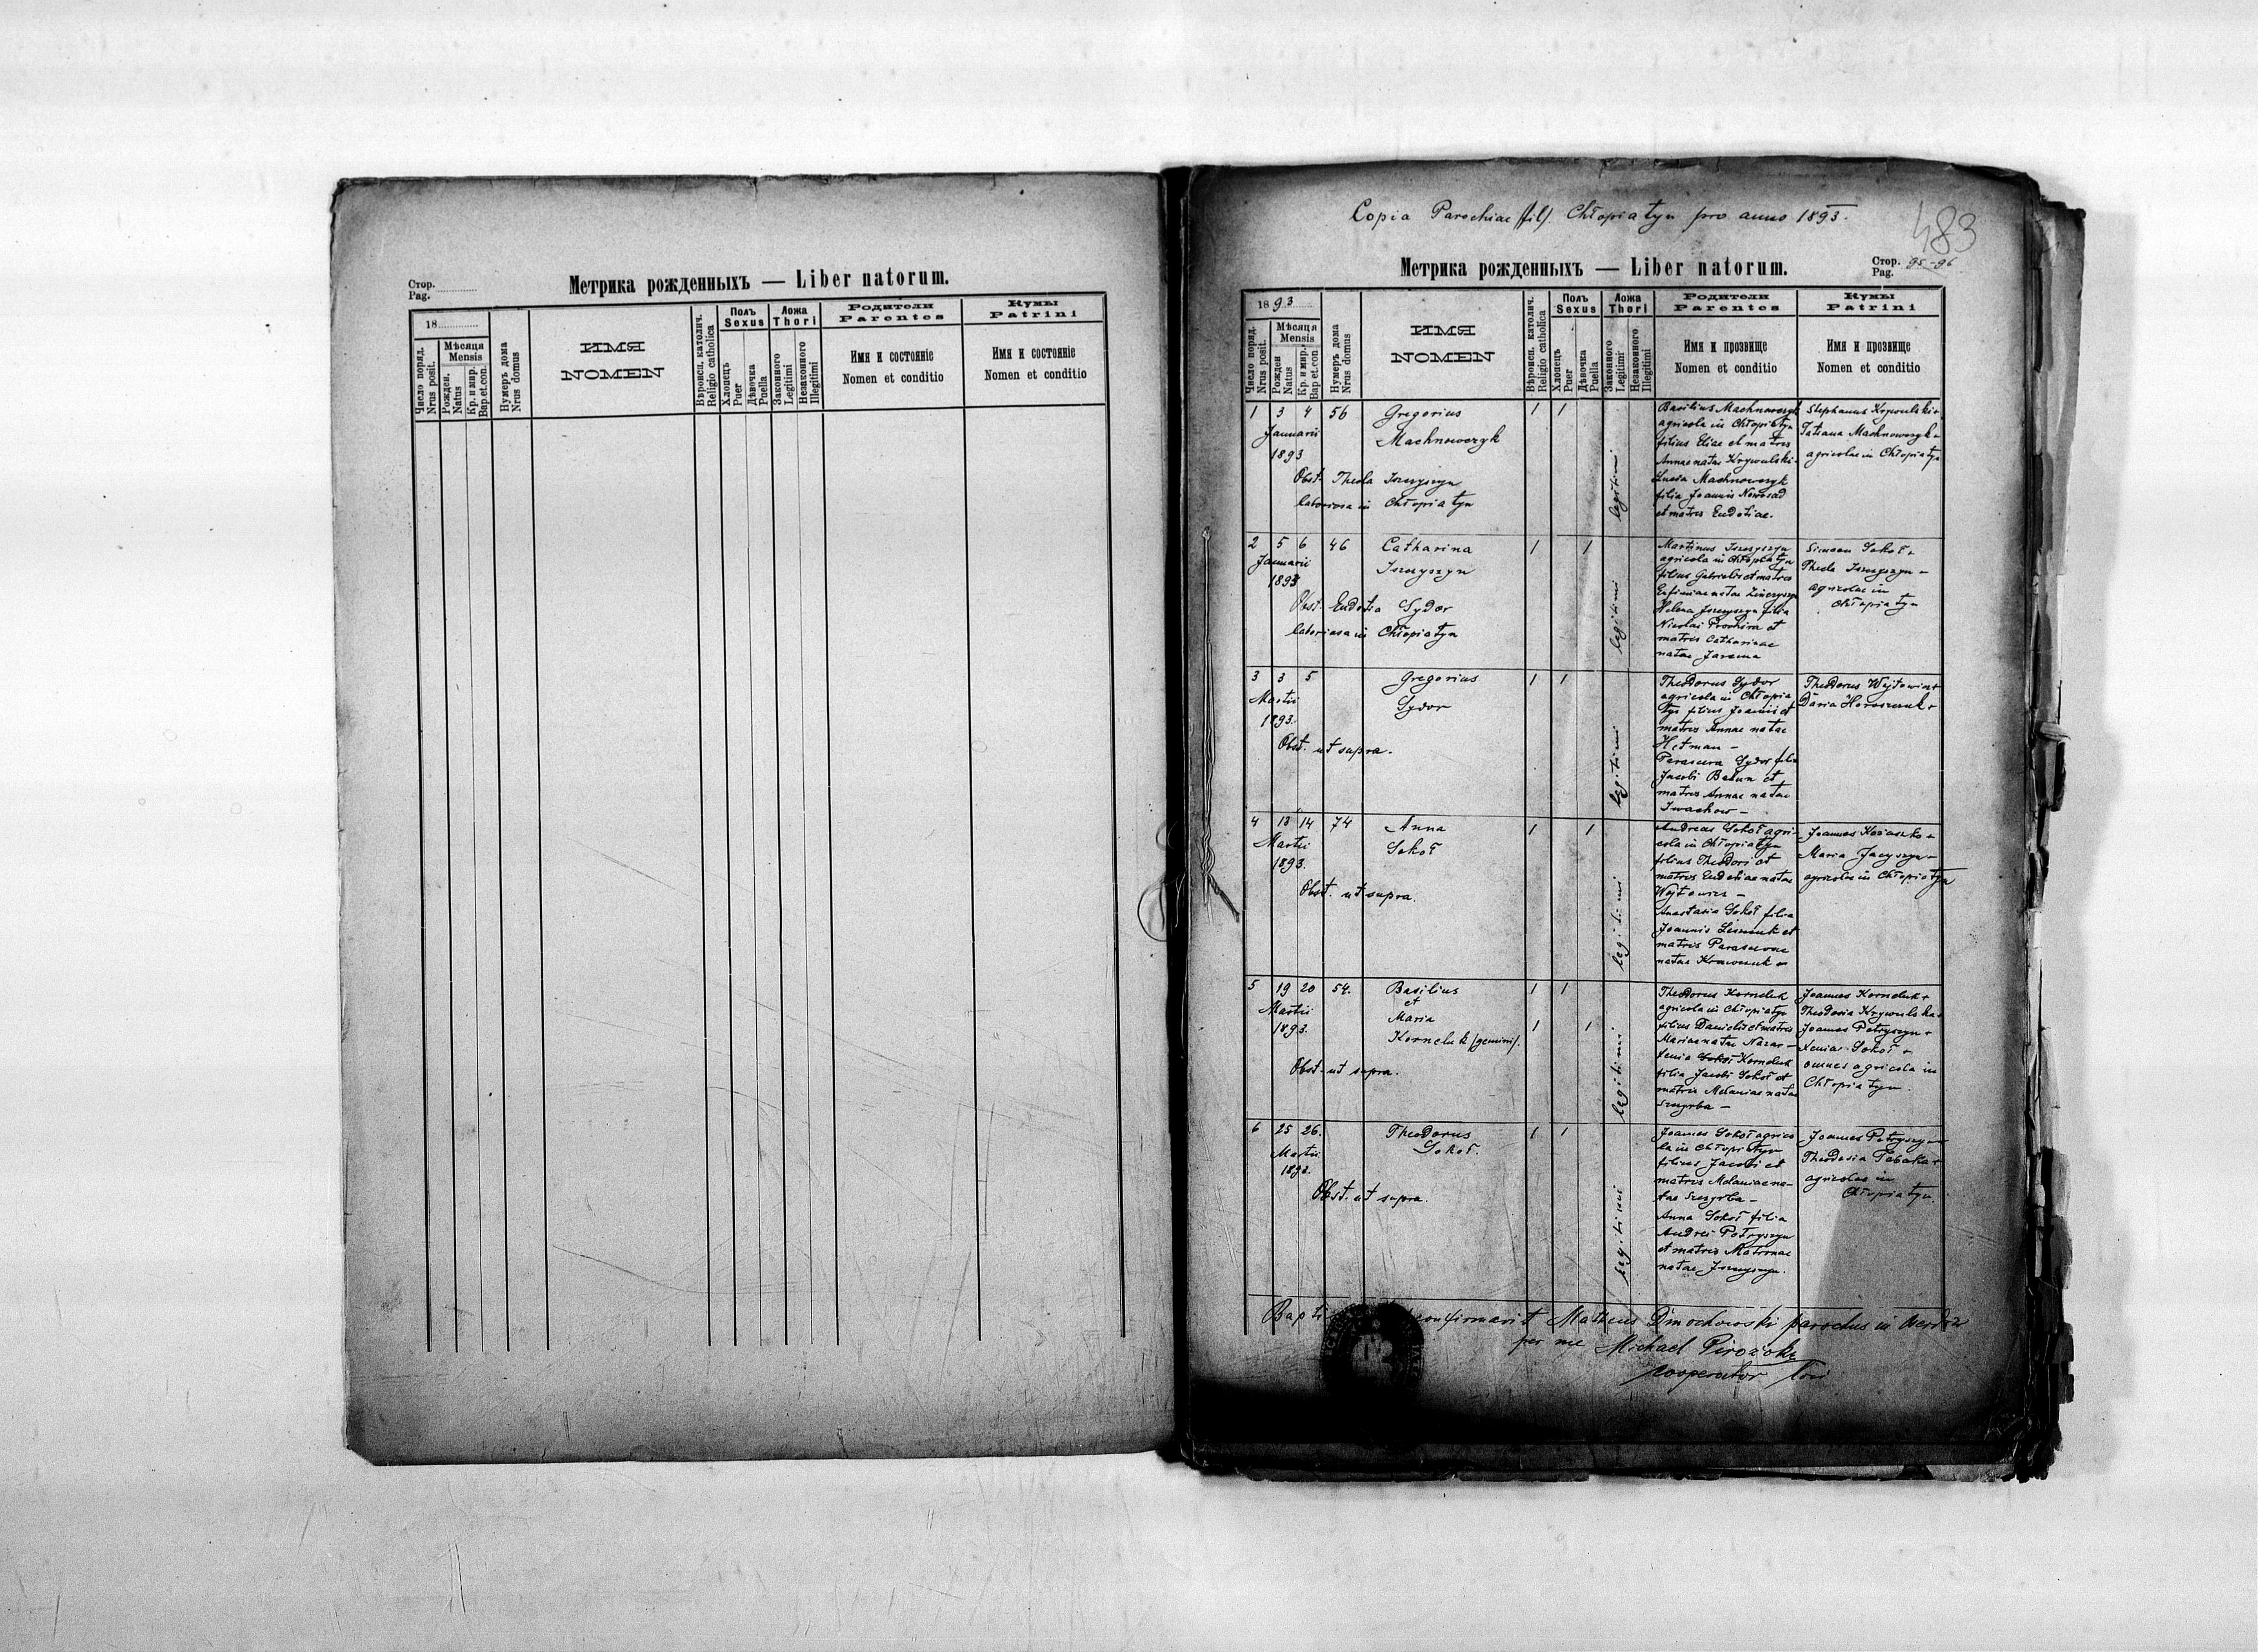 Стор.
Pag.
Метрика рожденныхъ — Liber natorum.
18
Число поряд.
Nrus posit.
Мѣсяця
Mensis
Рожден.
Natus
Кр. и мир.
Bap. et. con.
Нумеръ дома
Nrus domus
ИМЯ
NOMEN
Вѣроисп. католич.
Religio catholica
Полъ
Sexus
Хлопець
Puer
Дѣвочка
Puella
Ложа
Thori
Законного
Legitimi
Незаконного
Illegitimi
Родители
Parentes
Имя и состояніе
Nomen et conditio
Кумы
Patrini
Имя и состояніе
Nomen et conditio
Copia Parochiae /fil/. Chłopiatyn pro anno 1893.
483
Метрика рожденныхъ — Liber natorum.
Стор.
Pag. 95-96
1893
Число поряд.
Nrus posit.
Мѣсяця
Mensis
Рожден
Natus
Кр. и мир.
Bap et. con
Нумеръ дома
Nrus domus
ИМЯ
NOMEN
Вѣроисп. католич.
Religio catholica
Полъ
Sexus
Хлопець
Puer
Дѣвочка
Puella
Ложа
Thori
Законного
Legitimi
Незаконного
Illegitimi
Родители
Parentes
Имя и прозвище
Nomen et conditio
Кумы
Patrini
Имя и прозвище
Nomen et conditio
1 3 4 56 Gregorius 1 1
Januarii Machnowczyk
1893
Obst. Thecla Iszczyszyn
laboriosa in Chłopiatyn
legitimi
Basilius Machnowczyk
agricola in Chłopiatyn
filius Eliae et matris
Annae natae Krywulski-
Machnowczyk
filia Joannis Nowosad
et matris Eudokiae.
Stephanus Krywulski+
Tatiana Machnowczyk-
agricolae in Chłopiatyn
2 5 6 46 Catharina 1 1
Januarii Iszczyszyn
1893
Obst. Eudokia Sydor
laboriosa in Chłopiatyn
legitimi
Martinus Iszczyszyn
agricola in Chłopiatyn
filius Gabrielis et matris
Eufimiae natae
Helena Iszczyszyn filia
Nicolai Prochira et
matris Catharinae
natae Jarema
Simeon Sokoł+
Thecla Iszczyszyn-
agricolae in
Chłopiatyn
3 3 5 Gregorius 1 1
Martii Sydor
1893.
Obst. ut supra.
legitimi
Theodorus Sydor
agricola in Chłopia
tyn filius Joannis et
matris Annae natae
Hetman -
Parasceva Sydor filia
Jacobi Bakun et
matris Annae natae
Iwachow -
Theodorus Wojtowicz+
Daria Haraszczuk+
4 13 14 74 Anna 1 1
Martii Sokoł
1893.
Obst. ut supra.
legitimi
Andreas Sokoł agri-
cola in Chłopiatyn
filius Theodori et
matris Eudokiae natae
Wojtowicz -
Anastasia Sokoł filia
Joannis et
matris Parascevae
natae Krawczuk
Joannes
Maria Jacyszyn-
agricolae in Chłopiatyn
5 19 20 54. Basilius 1 1
Martii et
1893. Maria 1 1
Korneluk /gemini/.
Obst. ut supra.
legitimi
Theodorus Korneluk
agricola in Chłopiatyn
filius Danielis et matris
Mariae natae Nazar-
Xenia Sokoł Korneluk
filia Jacobi Sokoł et
matris Melaniae natae
Szczyrba -
Joannes Korneluk+
Theodosia Krywulska+
Joannes Petryszyn+
Xenia Sokoł+
omnes agricola in
Chłopiatyn.
6 25 26. Theodorus 1 1
Martii Sokoł.
1893.
Obst. ut supra.
legitimi
Joannes Sokoł agrico
la in Chłopiatyn
filius Jacobi et
matris Melaniae na-
tae Szczyrba -
Anna Sokoł filia
Andrei Petryszyn
et matris Matronae
natae Iszczyszyn.
Joannes Petryszyn
Theodosia Tabaka+
agricolae in
Chłopiatyn.
confirmavit Matheus Dmochowski parochus in
per me Michael
cooperator loci